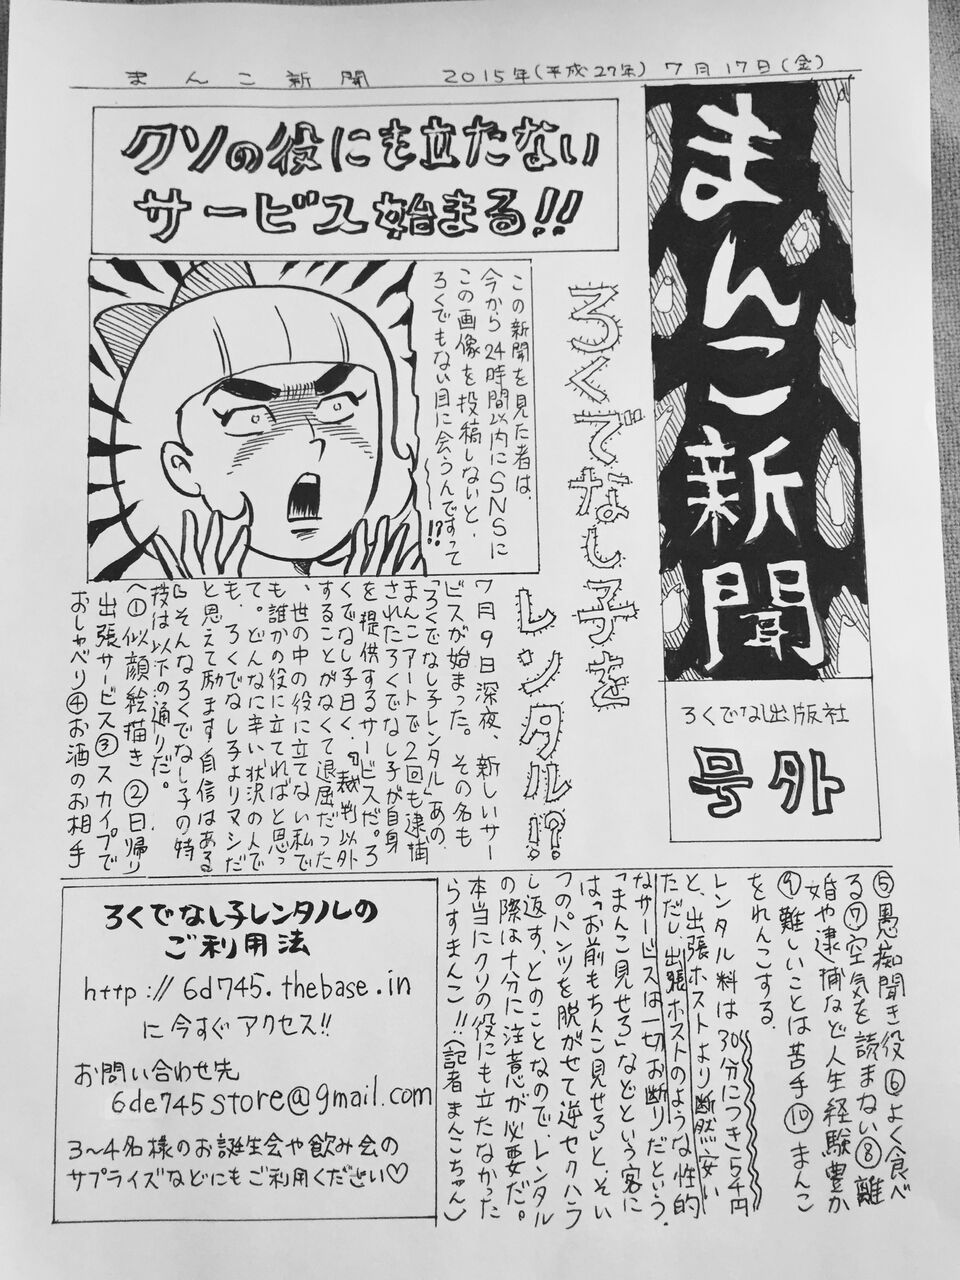 まんこ新聞　2015年(平成27年)7月17日(金)
まんこ新聞
ろくでなし出版社
号外
クソの役にも立たない
サービス始まる!!
ろくでなし子を
レンタル!?
この新聞を見た者は、
今から24時間以内にSNSに
この画像を投稿しないと、
ろくでもない目に会うんですって
〜!?
7月9日深夜、新しいサー
ビスが始まった。その名も
「ろくでなし子レンタル」あの、
まんこアートで2回も逮捕
されたろくでなし子が自身
を提供するサービスだ。ろ
くでなし子曰く、『裁判以外
することがなくて退屈だった
、世の中の役に立てない私で
も誰かの役に立てればと思っ
て。どんなに辛い状況の人で
も、ろくでなし子よりマシだ
と思えて励ます自信はある
』そんなろくでなし子の特
技は以下の通りだ。
①似顔絵描き②日帰り
出張サービス③スカイプで
おしゃべり④お酒のお相手
⑤愚痴聞き役⑥よく食べ
る⑦空気を読まない⑧離
婚や逮捕など人生経験豊か
⑨難しいことは苦手⑩まんこ
をれんこする
レンタル料は30分につき5千円
と、出張ホストより断然安い
ただし、出張ホストのような性的
なサービスは一切お断りだという。
「まんこ見せろ」などという客に
は「お前もちんこ見せろ」と、そい
つのパンツを脱がせて逆セクハラ
し返す、とのことなので、レンタル
の際は十分に注意が必要だ。
本当にクソの役にも立たなかった
らすまんこ!!(記者まんこちゃん)
ろくでなし子レンタルの
ご利用法
http://6d745.thebase.in
に今すぐアクセス!!
お問い合わせ先
6de745store@gmail.com
3〜4名様のお誕生会や飲み会の
サプライズなどにもご利用ください♡